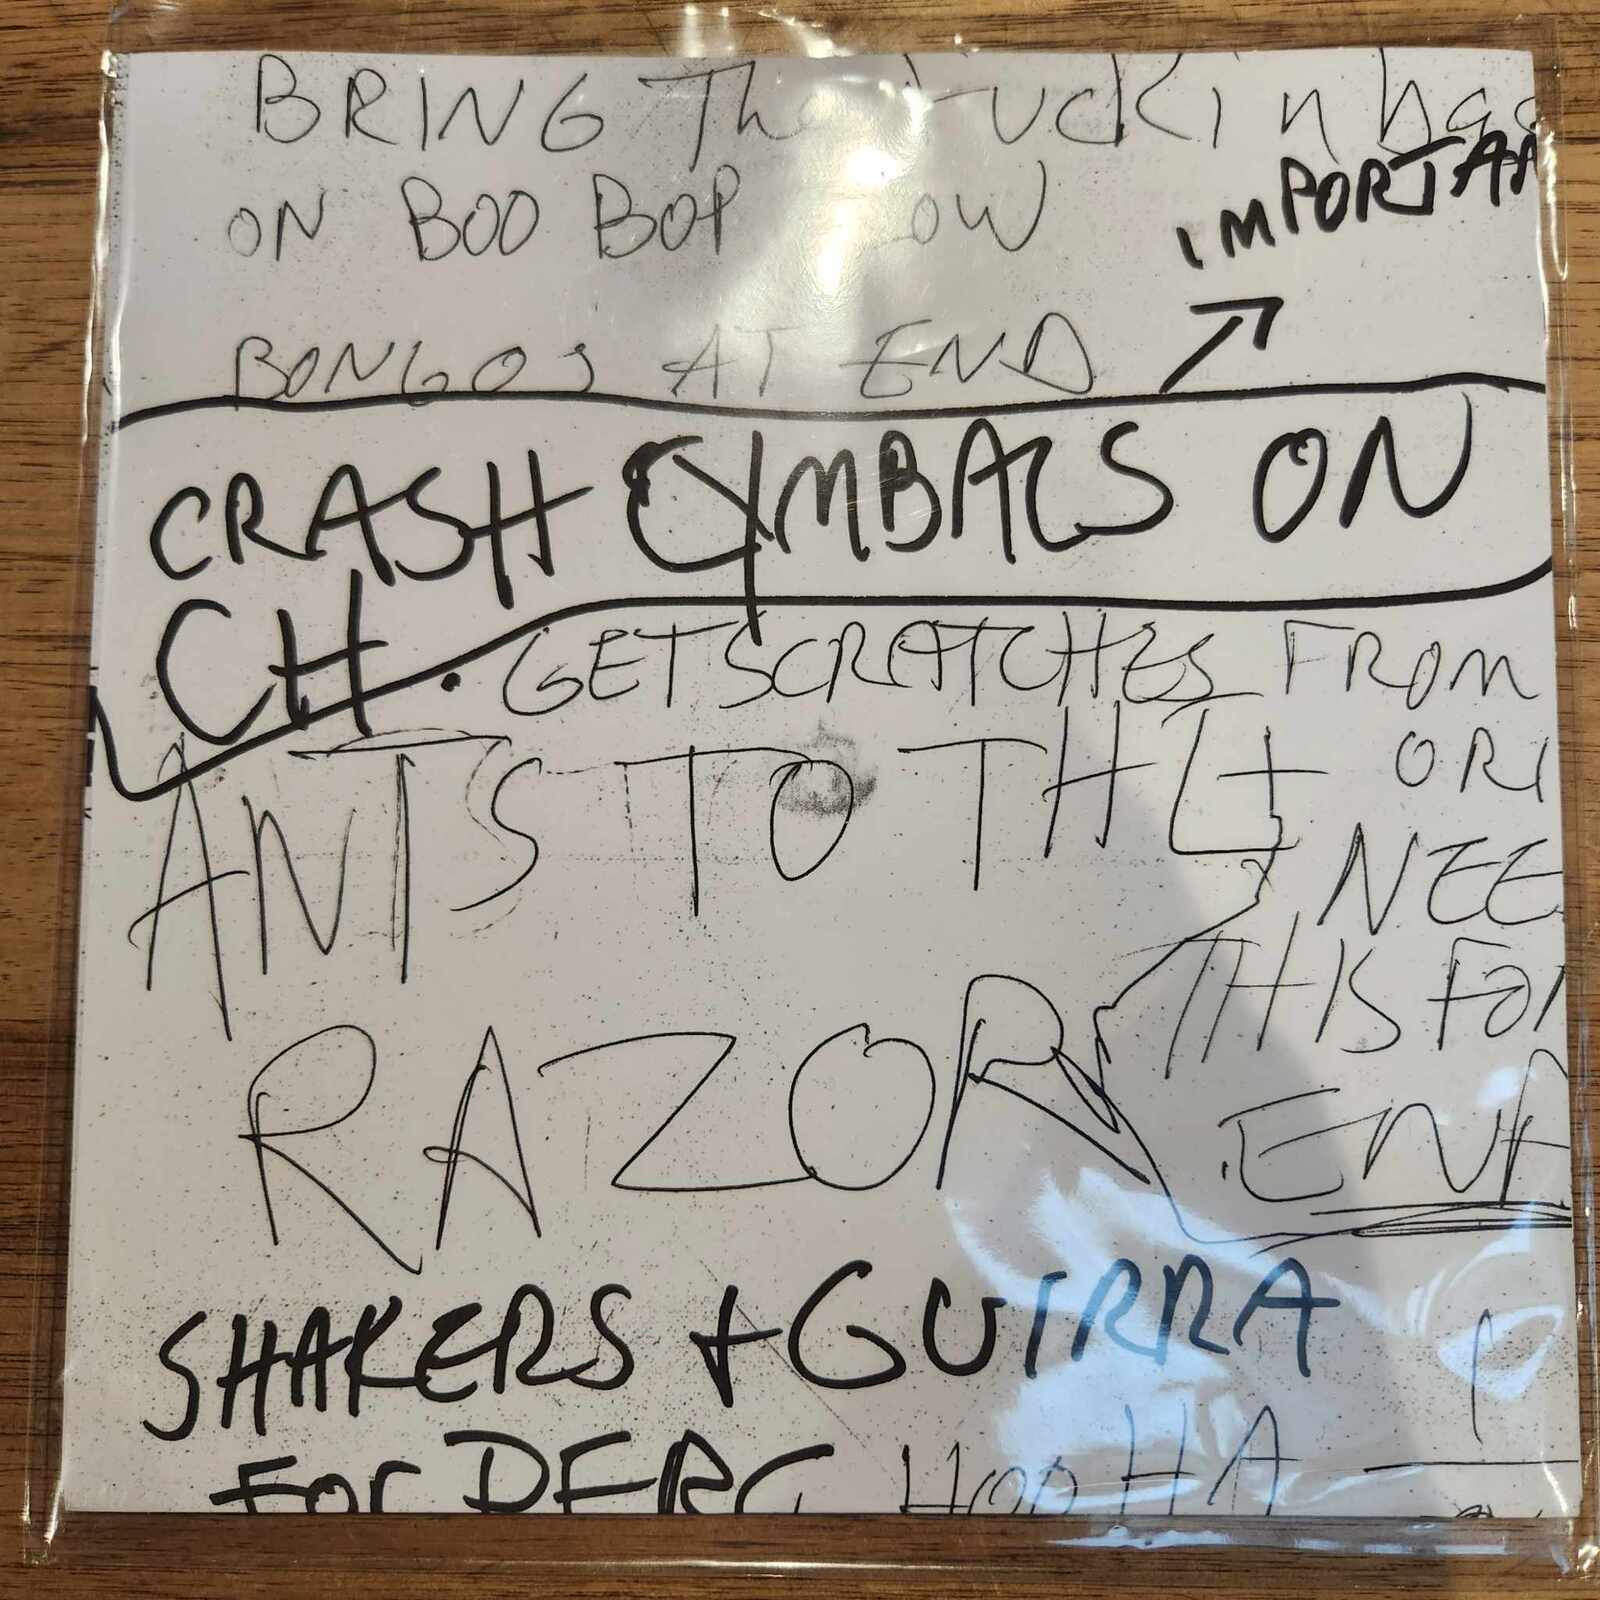 BRING The Fuckin
ON BOO BOP OW
IMPORTAN
BONGOS AT END
CRASH CYMBALS ON
CH.
GET SCRATCHES FROM
ORI
ANTS TO THE
NEE
THIS FOR
RAZOR
ENA
SHAKERS + GUIRRA
FOR PERC HOO HA